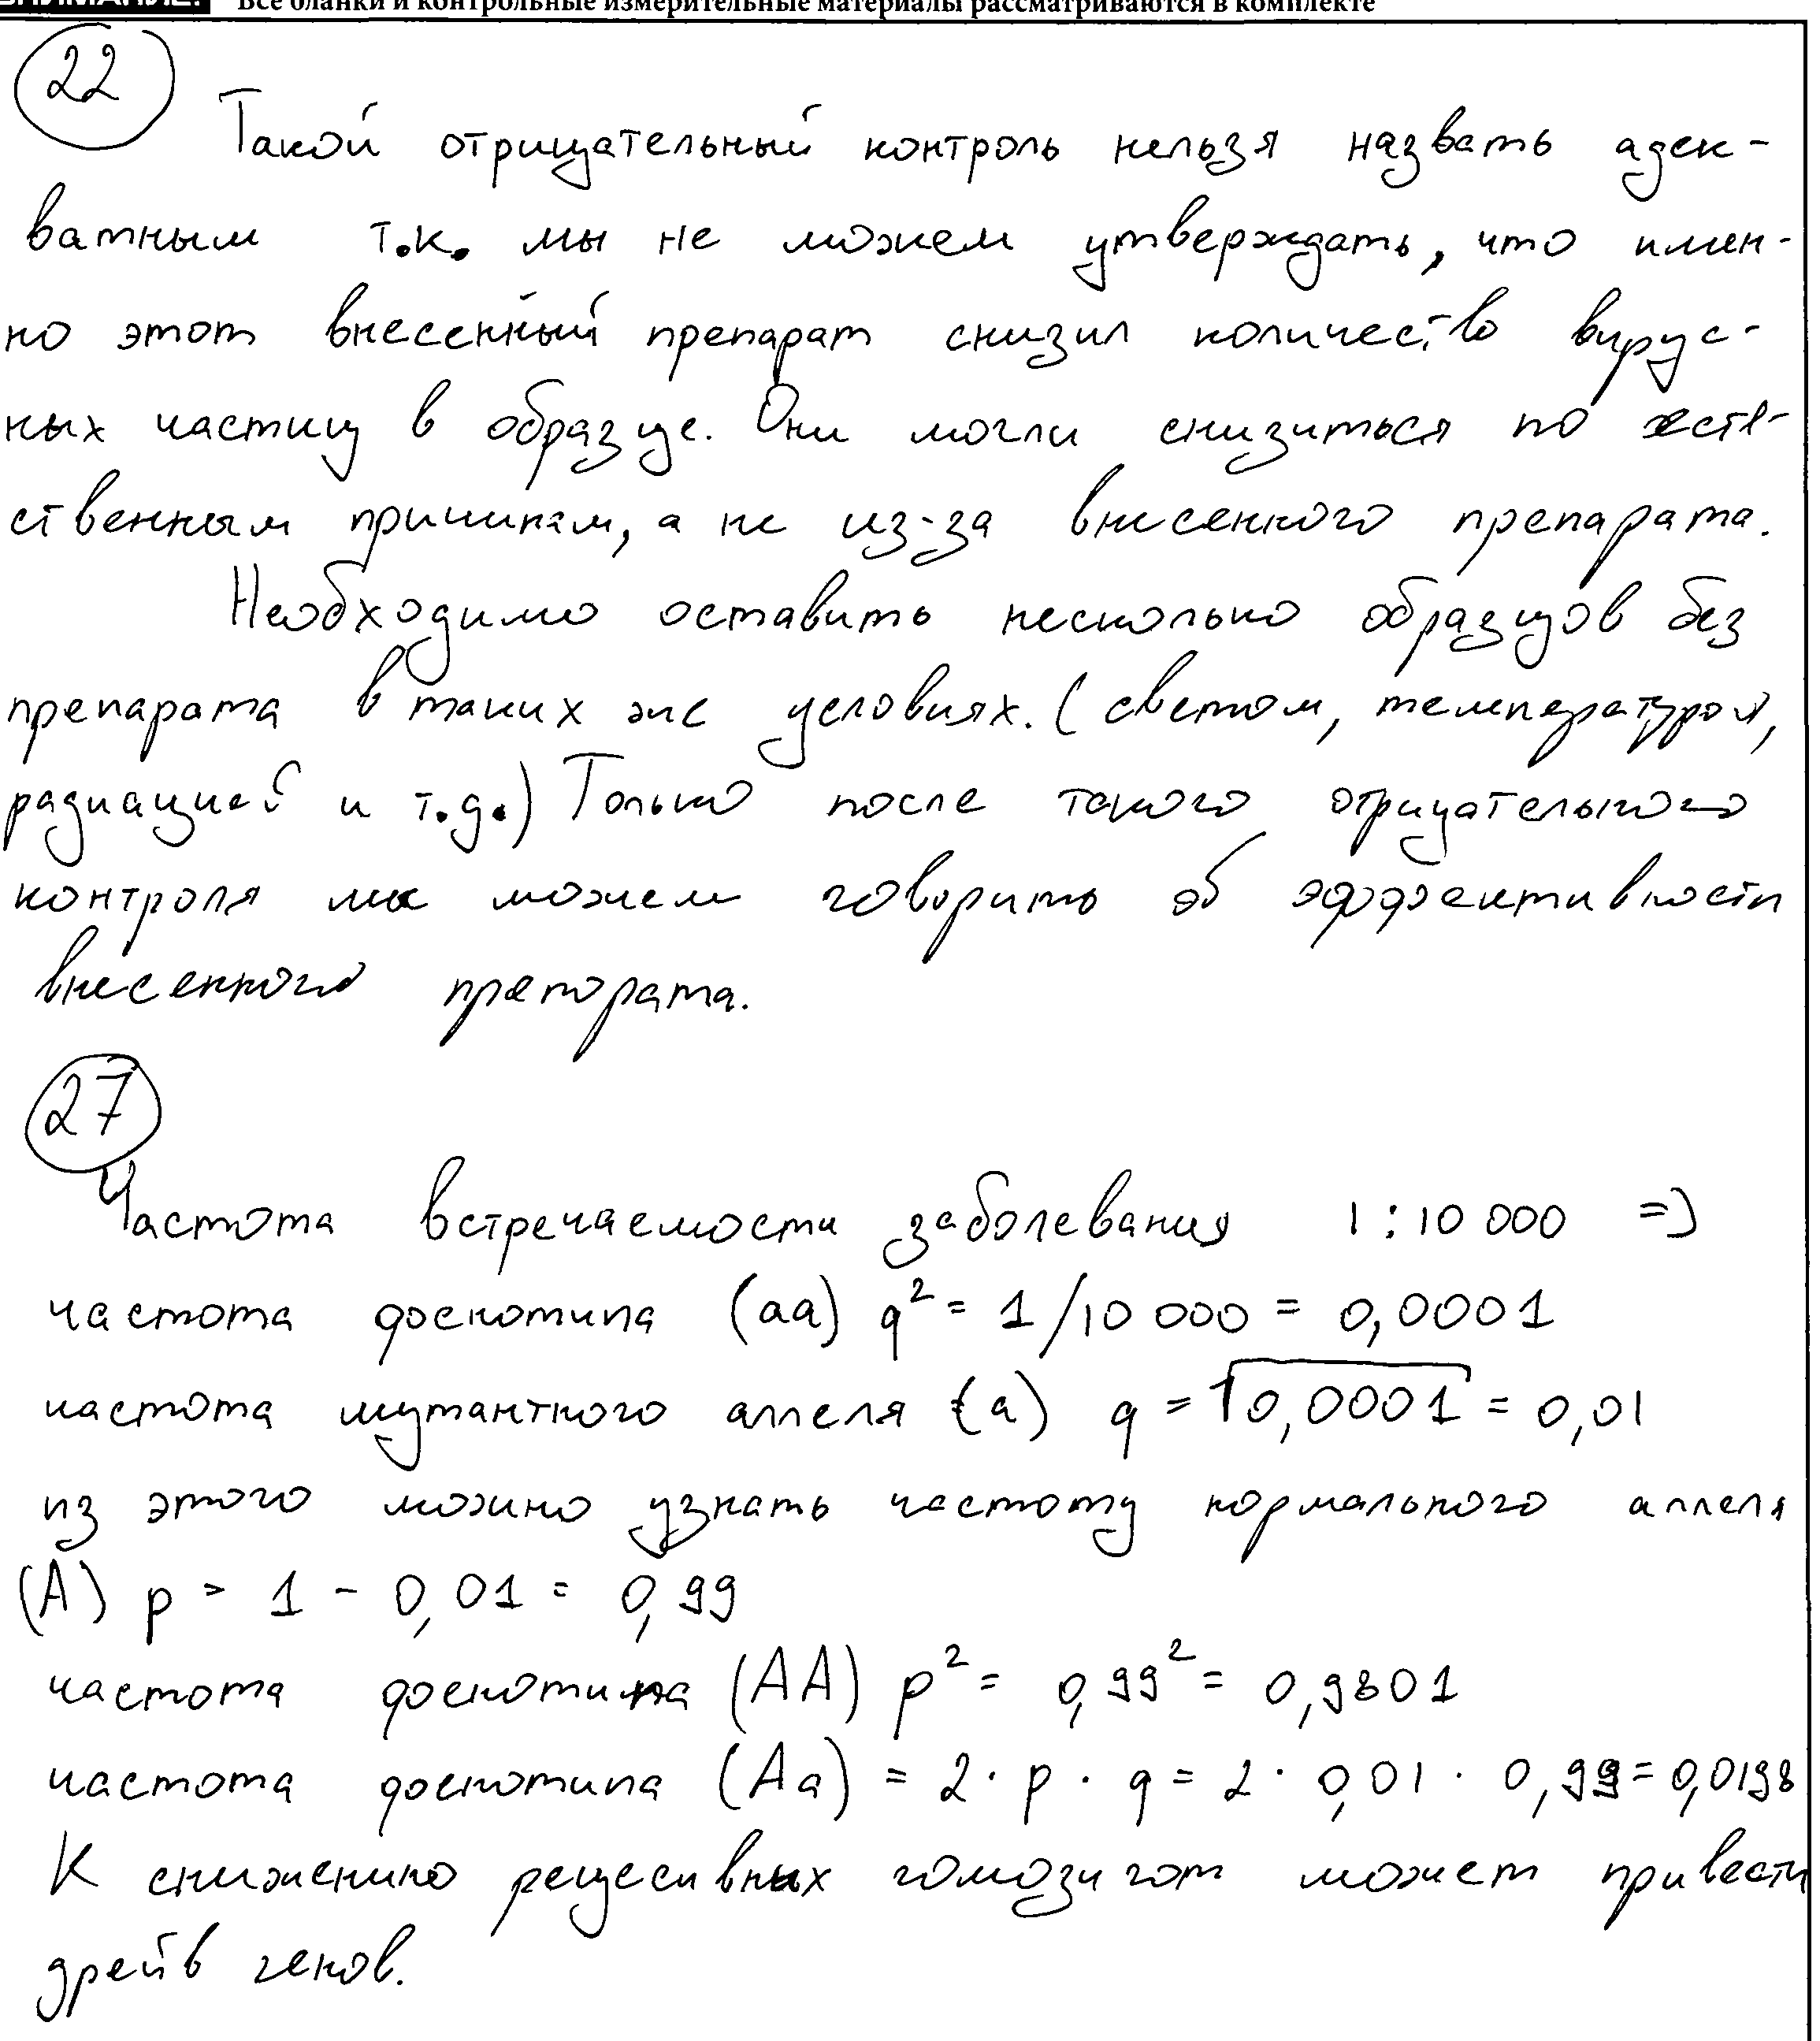 ВНИМАНИЕ! Все бланки и контрольные измерительные материалы рассматриваются в комплекте
22
Такой отрицательный контроль нельзя назвать адек-
ватным т.к. мы не можем утверждать, что имен-
но этот внесенный препарат снизил количество вирус-
ных частиц в образце. Они могли снизиться по есте-
ственным причинам, а не из-за внесенного препарата.
Необходимо оставить несколько образцов без
препарата в таких же условиях. (светом, температурой,
радиацией и т.д.) Только после такого отрицательного
контроля мы можем говорить об эффективности
внесенного препората.
27
Частота встречаемости заболевания 1 : 10 000 =>
частота фенотипа (aa) q² = 1/10 000 = 0,0001
частота мутантного аллеля (a) q = √0,0001 = 0,01
из этого можно узнать частоту нормального аллеля
(A) p = 1 - 0,01 = 0,99
частота фенотипа (AA) p² = 0,99² = 0,9801
частота фенотипа (Aa) = 2 · p · q = 2 · 0,01 · 0,99 = 0,0198
К снижению рецесивных гомозигот может привести
дрейв генов.